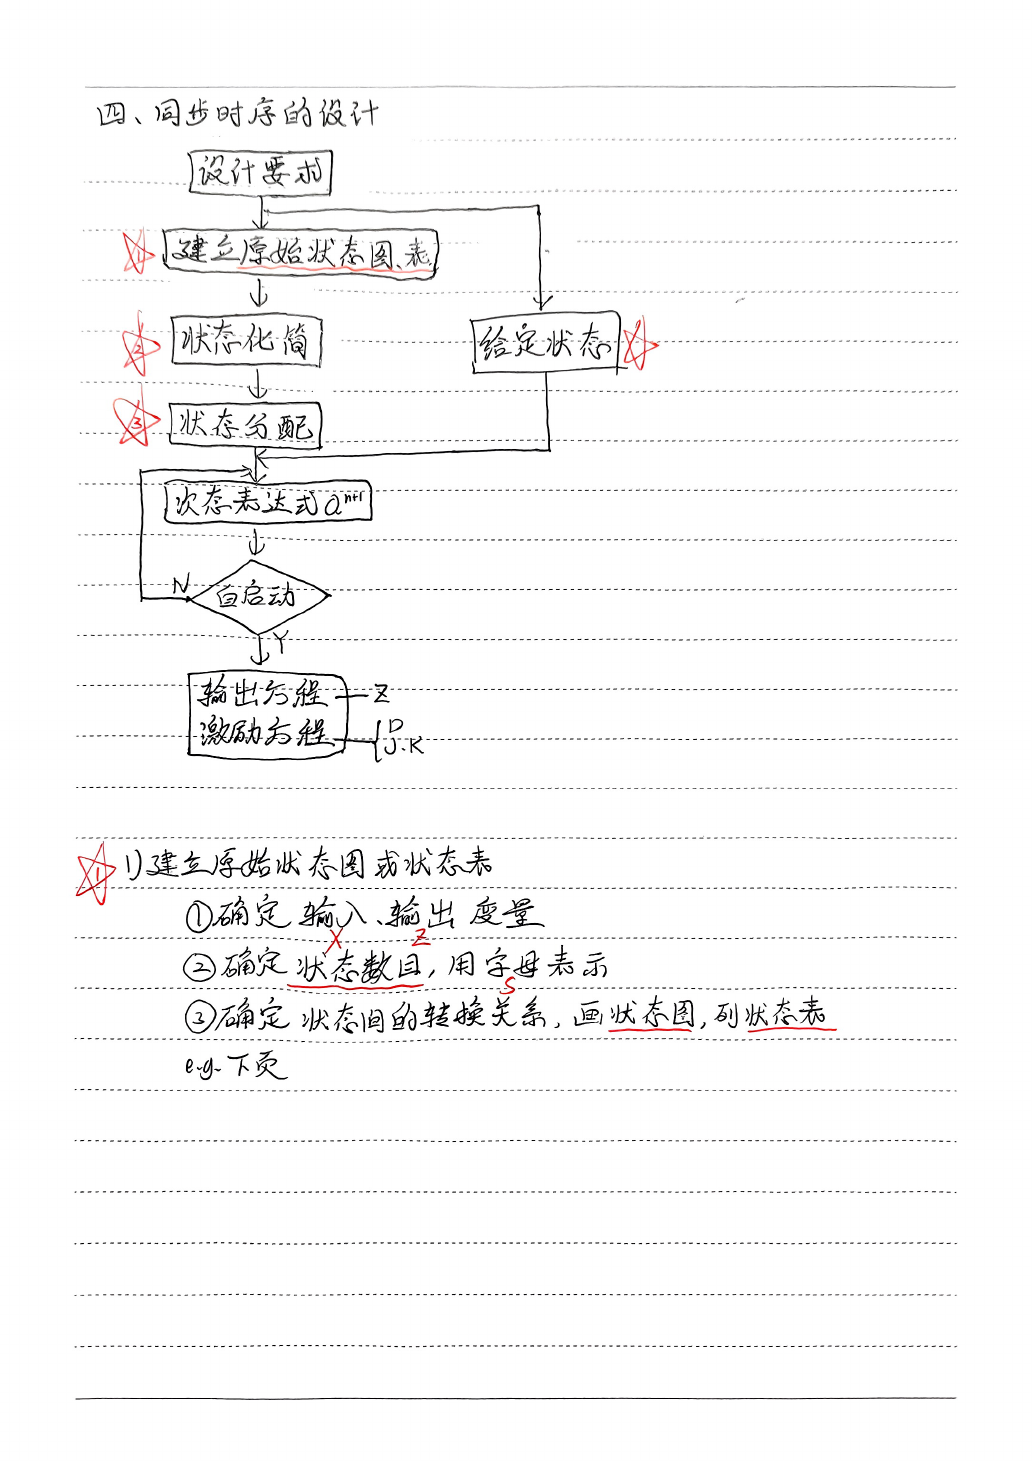 四、同步时序的设计
设计要求
1 建立原始状态图、表
2 状态化简
给定状态
3 状态分配
次态表达式 Qⁿ⁺¹
N 自启动
Y
输出方程 — Z
激励方程 { D
J.K
1 1) 建立原始状态图或状态表
①确定 输入、输出 度量
X Z
②确定 状态数目, 用字母表示
S
③确定 状态间的转换关系, 画状态图, 列状态表
e.g. 下页